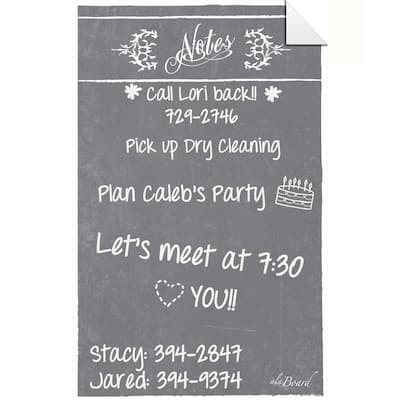 Notes
Call Lori back!!
729-2746
Pick up Dry Cleaning
Plan Caleb's Party
Let's meet at 7:30
YOU!!
Stacy: 394-2847
Jared: 394-9374
alaBoard